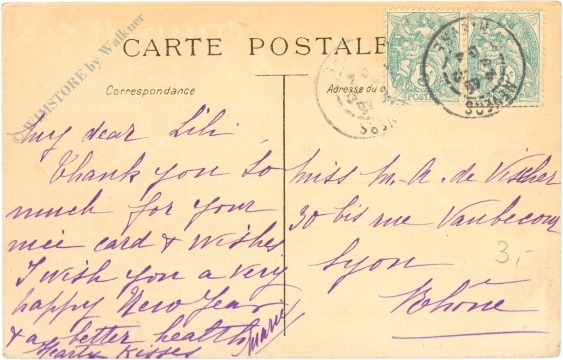 © WIMSTORE by Walkner
CARTE POSTALE
Correspondance
My dear Lili
Thank you so
much for your
nice card & wishes
I wish you a very
happy New Year
& a better health
Hearty Kisses
Marie
Miss M. A. de Vischer
30 bis rue Vaubecour
Lyon
Rhône
3,-